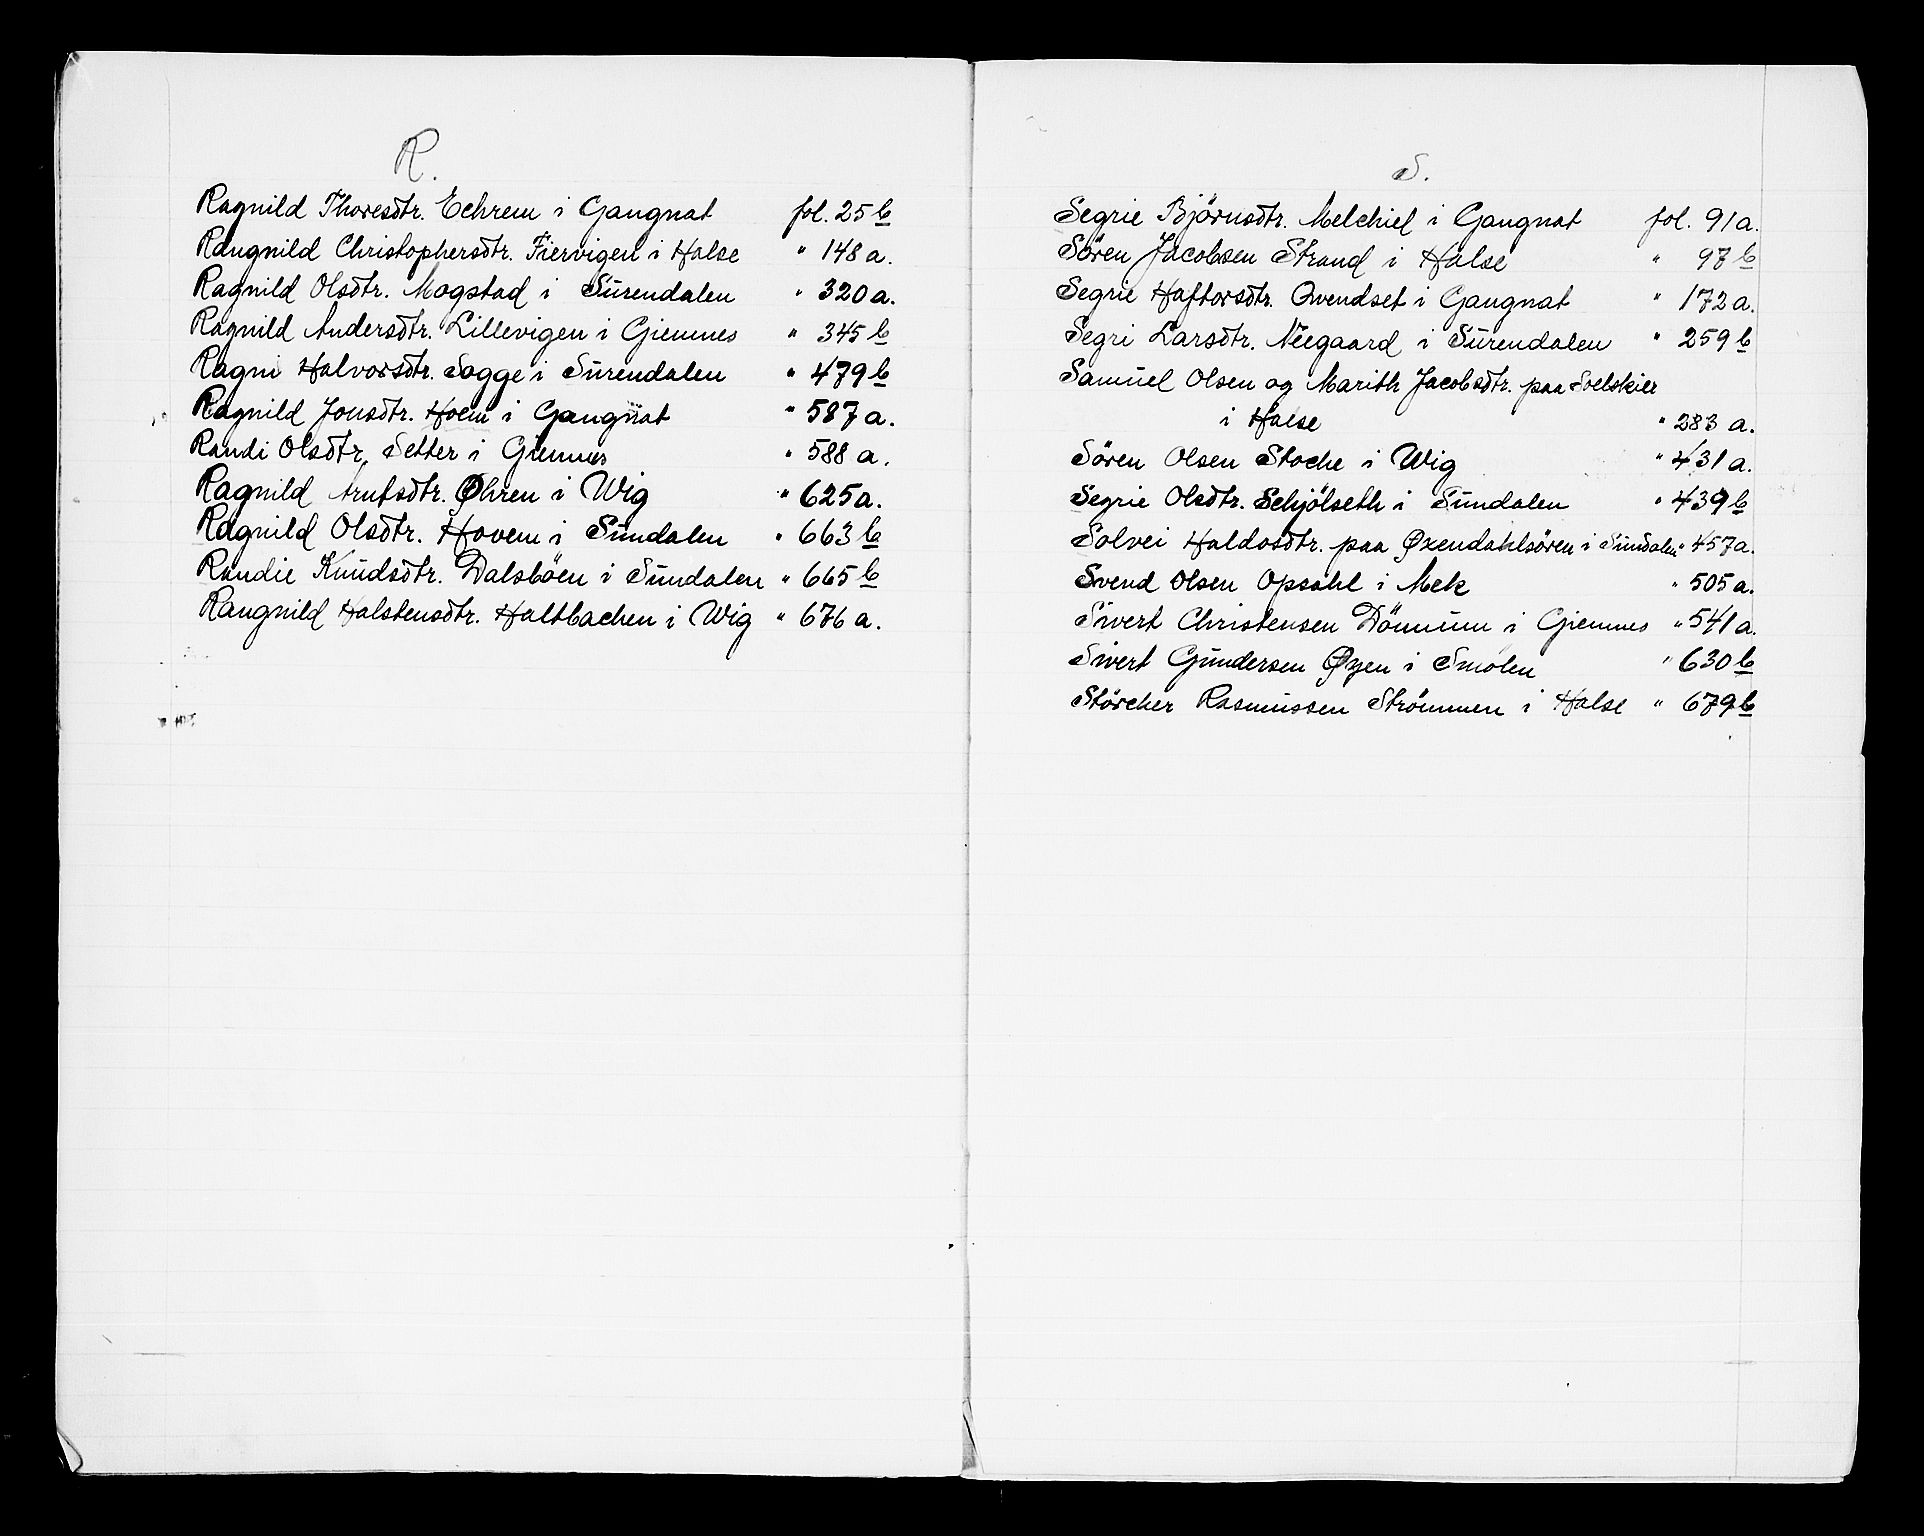 R.
Ragnild Thoresdtr. Echrem i Gangnat fol. 25 b
Rangnild Christophersdtr. Fiervigen i Halse " 148 a.
Ragnild Olsdtr. Mogstad i Surendalen " 320 a.
Ragnild Andersdtr. Lillevigen i Giemnes " 345 b
Ragni Halvorsdtr. Sogge i Surendalen " 479 b
Ragnild Jonsdtr. Hoem i Gangnat " 587 a.
Randi Olsdtr. Setter i Giemnes " 588 a.
Ragnild Arntsdtr. Øhren i Wig " 625 a.
Ragnild Olsdtr. Hovem i Sundalen " 663 b
Randie Knudsdtr. Dalsböen i Sundalen " 665 b
Rangnild Halstensdtr. Haltbachen i Wig " 676 a.
S.
Segrie Björnsdtr. Melchiel i Gangnat fol. 91 a.
Sören Jacobsen Strand i Halse " 97 b
Segrie Haftorsdtr. Qvendset i Gangnat " 172 a.
Segri Larsdtr. Neegaard i Surendalen " 259 b
Samuel Olsen og Marith Jacobsdtr. paa Svelskier
i Halse " 283 a.
Sören Olsen Stoche i Wig " 431 a.
Segrie Olsdtr. Schjölseth i Sundalen " 439 b
Solvei Haldosdtr. paa Øxendahlsören i Sundalen " 457 a.
Svend Olsen Opsahl i Mek " 505 a.
Sivert Christensen Dönnum i Giemnes " 541 a.
Sivert Gundersen Øyen i Smolen " 630 b
Störcher Rasmussen Strömmen i Halse " 679 b